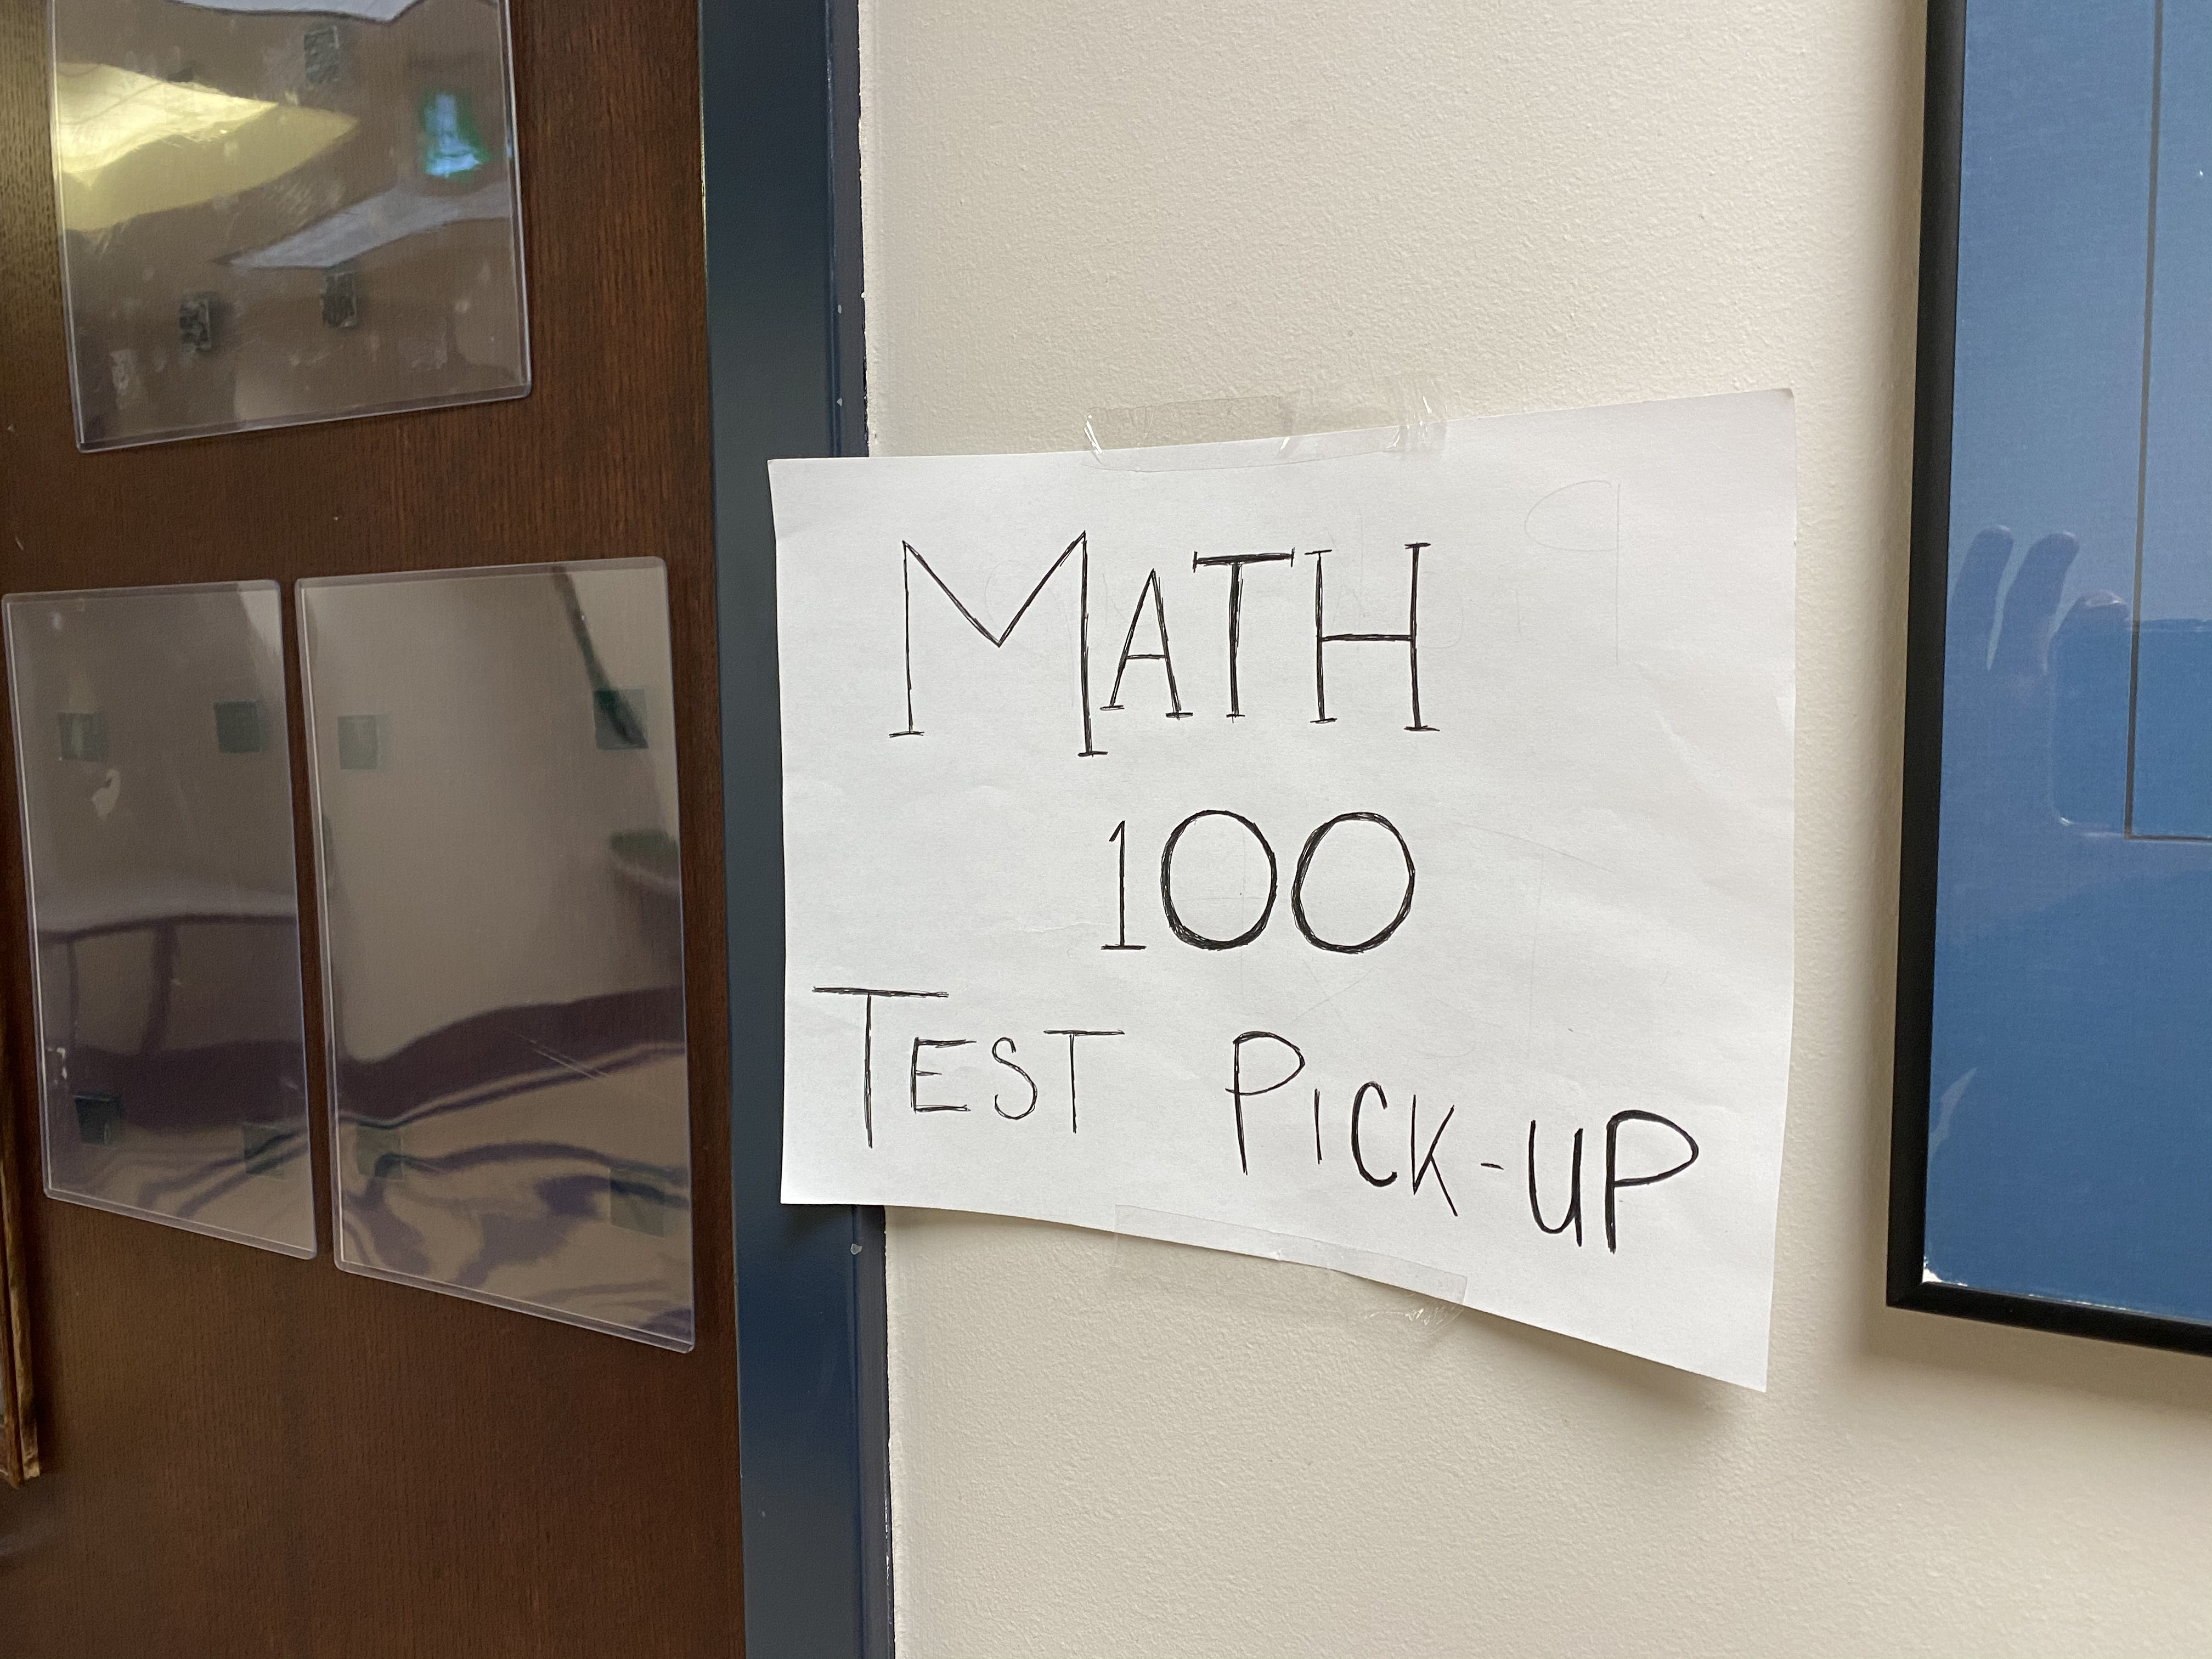 MATH
100
TEST PICK-UP